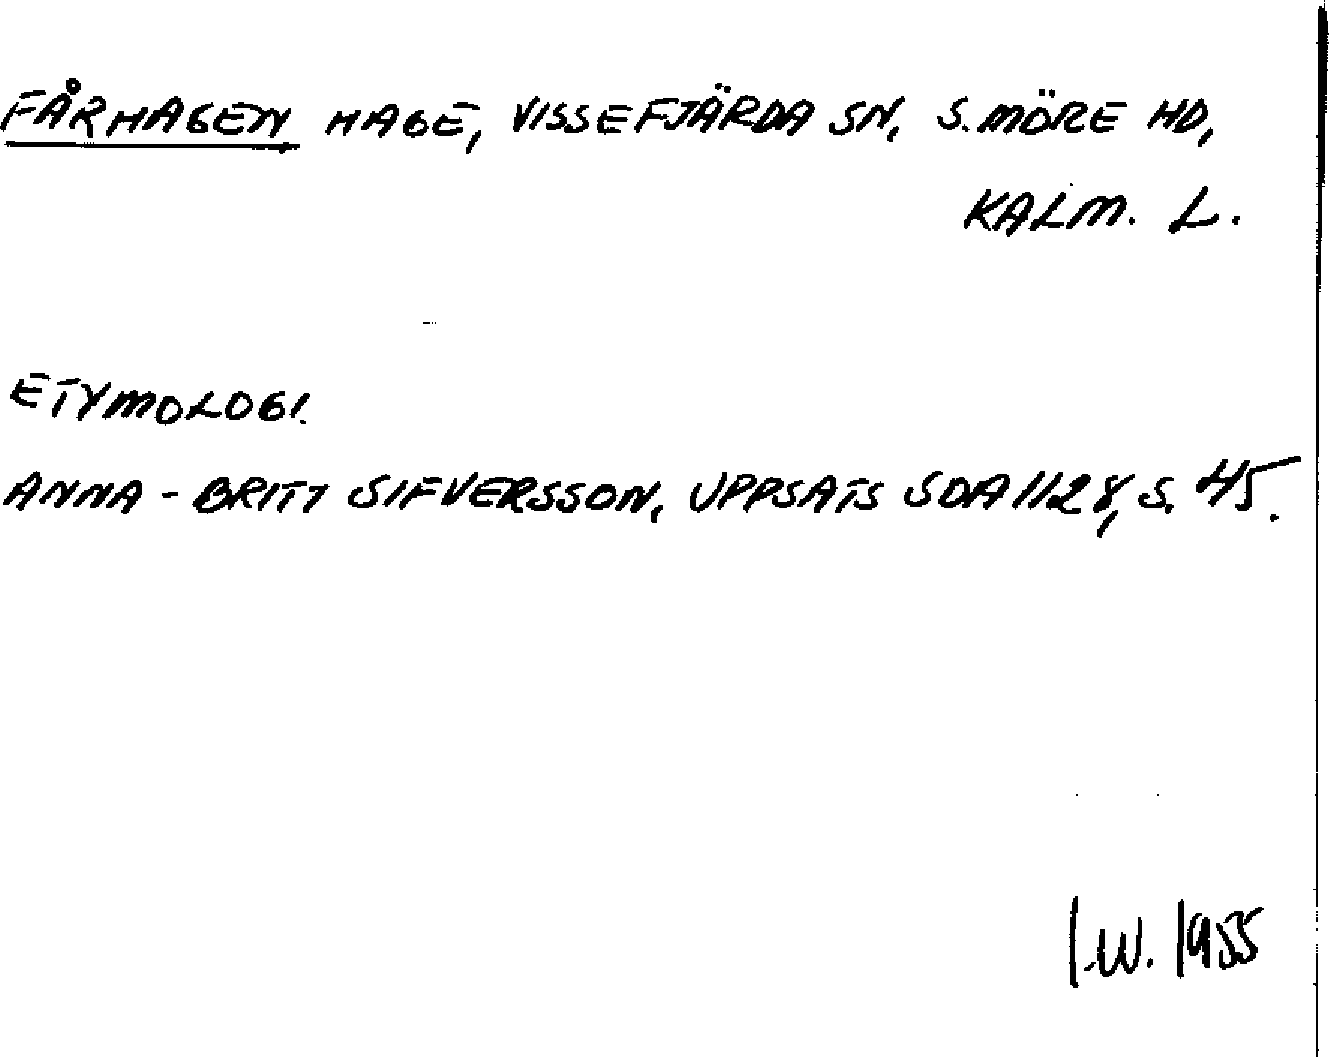 FÅRHAGEN HAGE, VISSEFJÄRDA SN, S. MÖRE HD,
KALM. L.
ETYMOLOGI.
ANNA-BRITT SIFVERSSON, UPPSATS SOA 1128, S. 45.
I.W. 1955